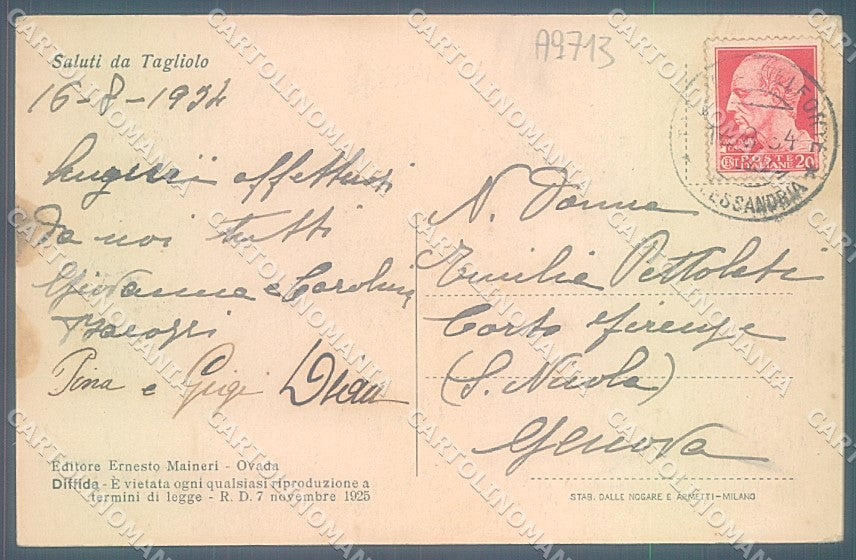 Saluti da Tagliolo
A9713
16-8-1934
effettuosi
da noi tutti
Giovanna e Carolina
Pina e Gigi
N. Donna
Emilia Pettolati
Corso Firenze
(S. Nicola)
Genova
POSTE
ITALIANE 20
ESSANDRIA
Editore Ernesto Maineri - Ovada
Diffida - È vietata ogni qualsiasi riproduzione a
termini di legge - R. D. 7 novembre 1925
STAB. DALLE NOGARE E ARMETTI-MILANO
CARTOLINOMANIA